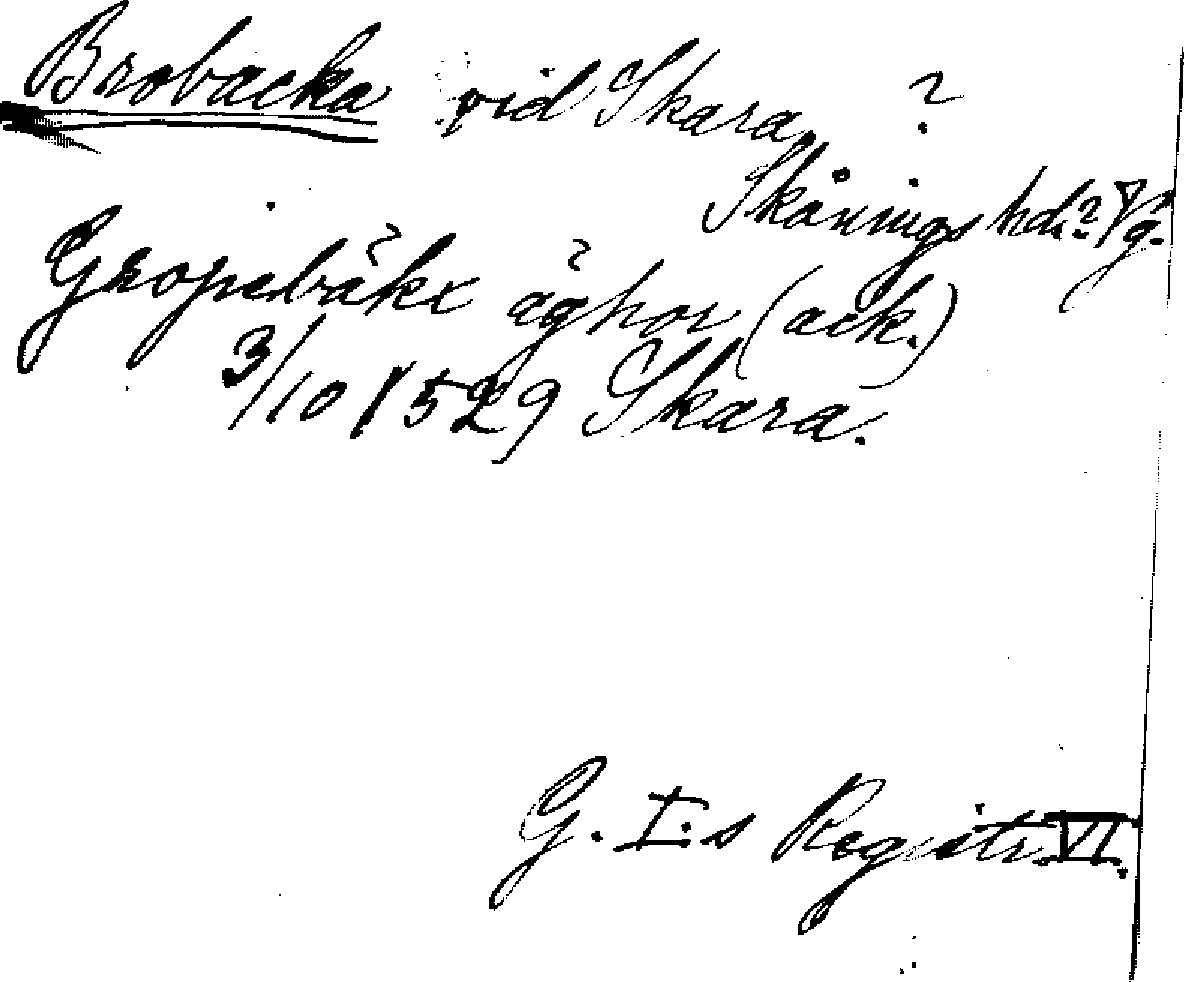 Brobacka vid Skara, ?
Skånings hd? Vg.
Gropebäkx äghor (ack.)
3/10 1529 Skara.
G. I:s Registr. VI.